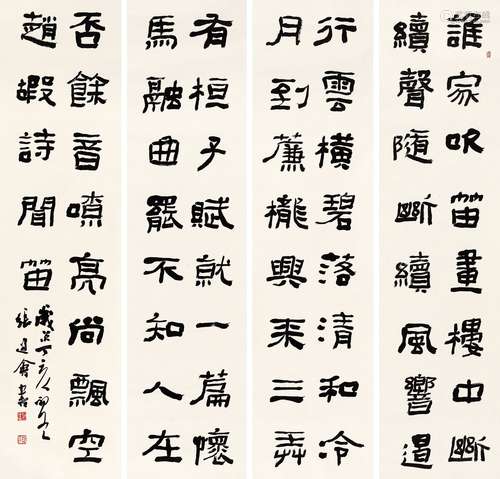 誰家吹笛畫樓中斷
續聲隨斷續風響遏
行雲橫碧落清和冷
月到簾櫳興來三弄
有桓子賦就一篇懷
馬融曲罷不知人在
否餘音嘹亮尚飄空
趙嘏詩聞笛
歲在丁亥